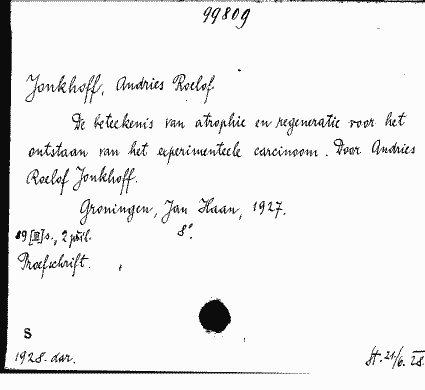 99809
Jonkhoff, Andries Roelof.
De beteekenis van atrophie en regeneratie voor het
ontstaan van het experimenteele carcinoom. Door Andries
Roelof Jonkhoff.
Groningen, Jan Haan, 1927.
89 [III] s., 2 příl. 8°.
Proefschrift.
S
1928. dar.
St. 21/6. 28.